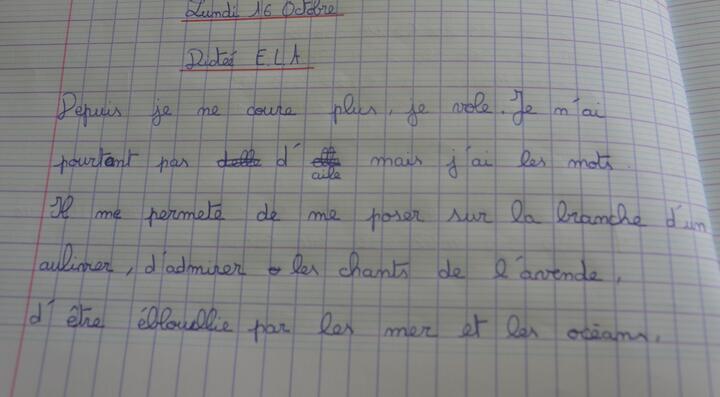 Lundi 16 Octobre
Dicteé E.L.A
Depuis je ne coure plus, je vole. Je n'ai
pourtant pas d' aile mais j'ai les mots.
Il me permete de me poser sur la branche d'un
aulivier, d'admirer les chants de l'avende,
d'être ébloullie par les mer et les océans.